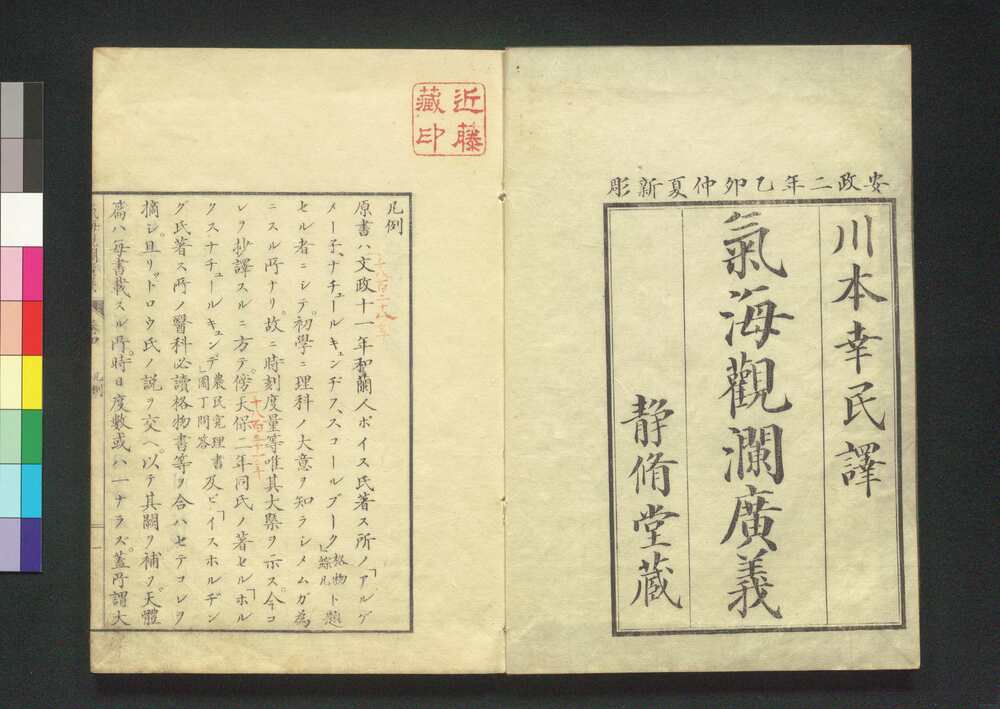 安政二年乙卯仲夏新彫
川本幸民譯
氣海觀瀾廣義
静脩堂蔵
近藤藏印
凡例
原書ハ文政十一年和蘭人ボイス氏著ス所ノ「アルゲ
千八百二十八年
メー子、ナチュールキュンヂフ、スコールブーク」格物ト題
セル者ニシテ。初學ニ理科ノ大意ヲ知ラシメムガ為
ニスル所ナリ。故ニ時刻度量等唯其大槩ヲ示ス。今コ
レヲ抄譯スルニ方テ。傍天保二年同氏ノ著セル「ホル
千八百三十一年
クスナチュールキュンデ」農民究理書園丁問答及ビ「イスホルヂン
グ氏著ス所ノ醫科必讀格物書等ヲ合ハセテコレヲ
摘シ。且リットロウ氏ノ説ヲ交ヘ。以テ其闕ヲ補フ。天體
篇ハ毎書載スル所。時日度數或ハ一ナラズ。蓋所謂大
凡例
一